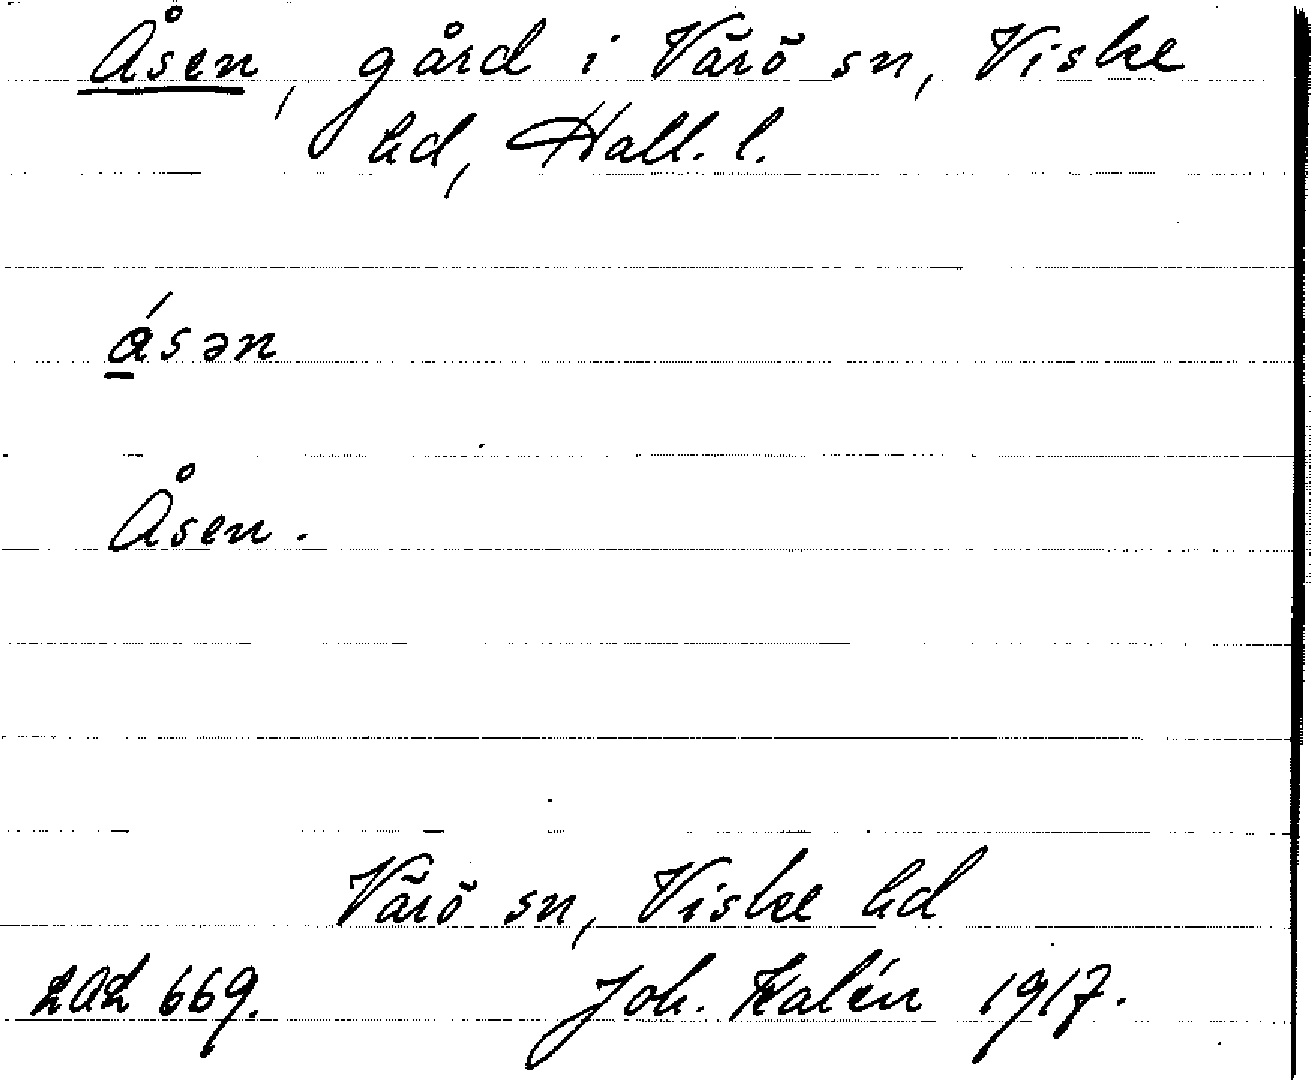 Åsen, gård i Värö sn, Viske
hd, Hall. l.
ásən
Åsen.
Värö sn, Viske hd
LAL 669. Joh. Kalén 1917.